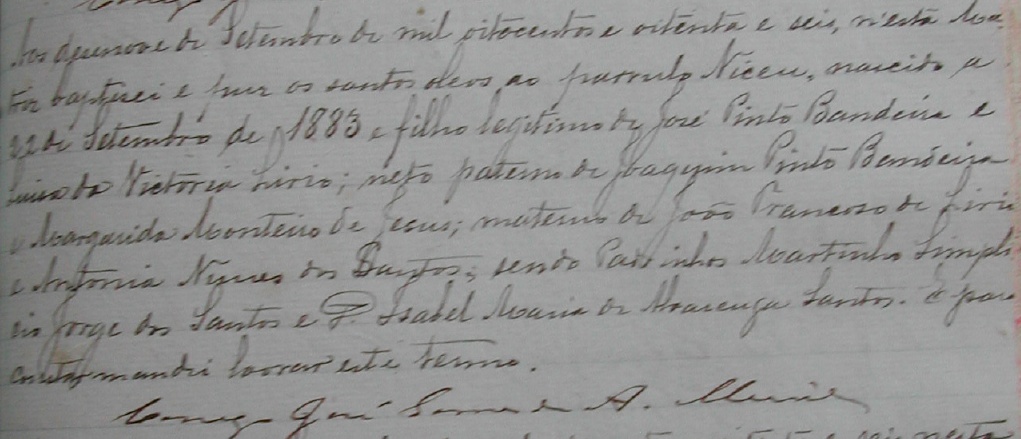 Aos desenove de Setembro de mil oitocentos e oitenta e seis, n'esta Ma
triz baptisei e puz os santos oleos ao parvulo Niceu, nascido a
22 de Setembro de 1883 e filho legitimo de José Pinto Bandeira e
Luisa da Victoria Lirio; neto paterno de Joaquim Pinto Bandeira
e Margarida Monteiro de Jesus; materno de João Francoso de Lirio
e Antonia Nunes dos Santos; sendo Padrinhos Martinho Simpli
cio Jorge dos Santos e D. Isabel Maria de Alvarenga Santos. E para
constar mandei lavrar este termo.
Conego José Gomes de A.